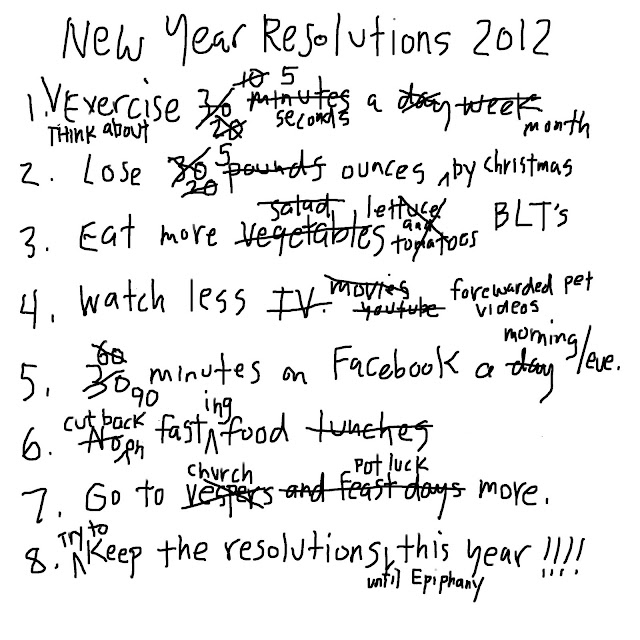 New Year Resolutions 2012
10 5
1. Exercise 30 minutes a day week
Think about 20 seconds month
2. Lose 30 5 pounds ounces by christmas
20
salad lettuce BLT's
3. Eat more vegetables and tomatoes
4. Watch less TV. movies forewarded pet
youtube videos
60 morning/eve.
5. 30 90 minutes on Facebook a day
cut back ing
6. No on fast food lunches
church pot luck
7. Go to vespers and feast days more.
Try to
8. Keep the resolutions, this year !!!!
until Epiphany